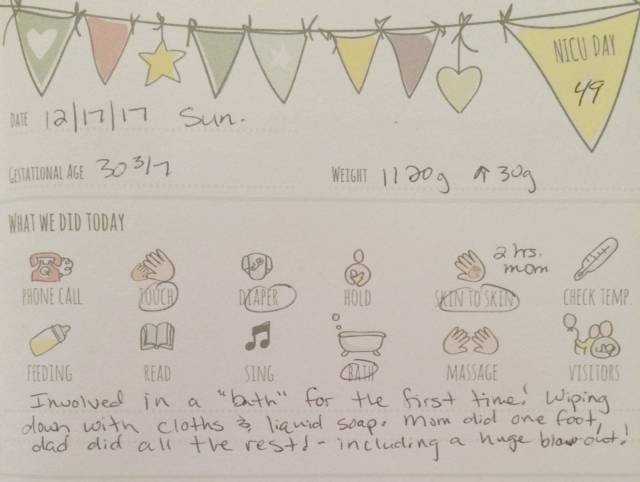 NICU DAY
49
DATE 12/17/17 Sun.
GESTATIONAL AGE 30 3/7 WEIGHT 1120g ↑30g
WHAT WE DID TODAY
2 hrs.
mom
PHONE CALL TOUCH DIAPER HOLD SKIN TO SKIN CHECK TEMP.
FEEDING READ SING BATH MASSAGE VISITORS
Involved in a "bath" for the first time! Wiping
down with cloths & liquid soap. Mom did one foot,
dad did all the rest! - including a huge blowout!